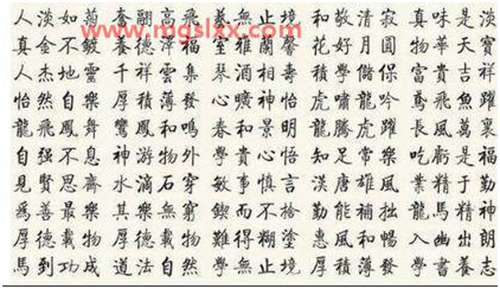 人淡如菊 奮翮高飛 無止境 和敬清寂 真味是淡
www.mgslxx.com
真金不鍍 養德 福 雅蘭馨 花好月圓 物華天寶
人杰地靈 千祥雲集 琴酒相壽 積學儲保 富貴吉祥
怡然自樂 厚積薄發 心曠神怡 虎嘯龍吟 鳶飛魚躍
龍飛鳳舞 鸞鳳和鳴 春和景明 龍騰虎躍 長風萬裏
自强不息 神游物外 和貴心悟 知足常樂 吃虧是福
見賢思齊 水滴石穿 學敏事慎言 漢唐雄風 業精于勤
爲善最樂 其樂無窮 鍥而不捨 勤能補拙 龍馬精神
厚德載物 厚德載物 難得糊塗 惠風和暢 入幽出朗
馬到功成 道法自然 學無止境 厚積薄發 學書養志